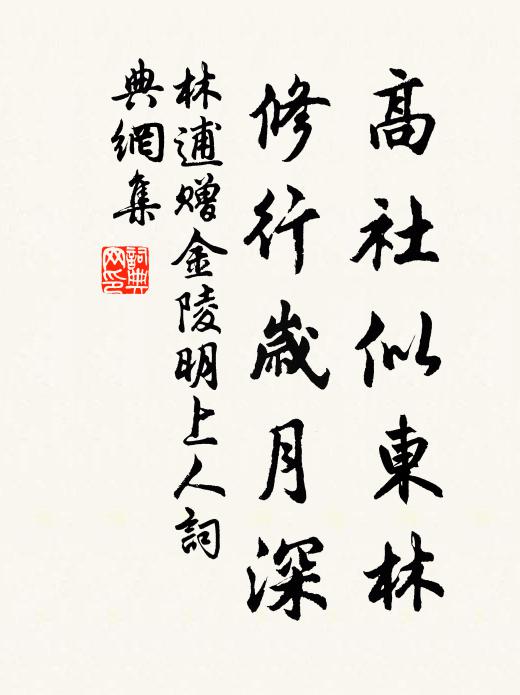 高社似東林
修行歲月深
林逋贈金陵明上人詞
典網集
詞典
网印